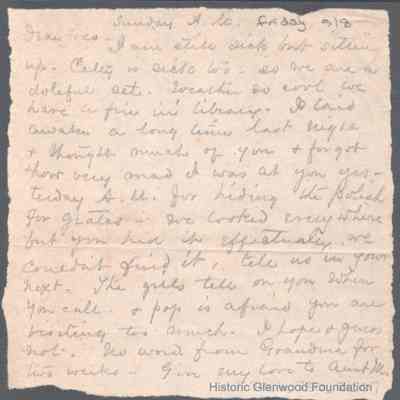 Sunday A. M. Friday 9/8
Dear
I am still sick but sitten
up. is sick too. so we are a
doleful set. Weather so cool we
have a fire in library. I laid
awake a long time last night
& thought much of you & forgot
how very mad I was at you yes-
terday A.M. for hiding the polish
for grates. We looked every where
but you hid it effectually. we
couldn't find it, tell us in your
next. The girls tell on you when
you call. & pop is afraid you are
too much. I hope & guess
not. No word from Grandma for
two weeks. Give my love to Aunt M.
Historic Glenwood Foundation